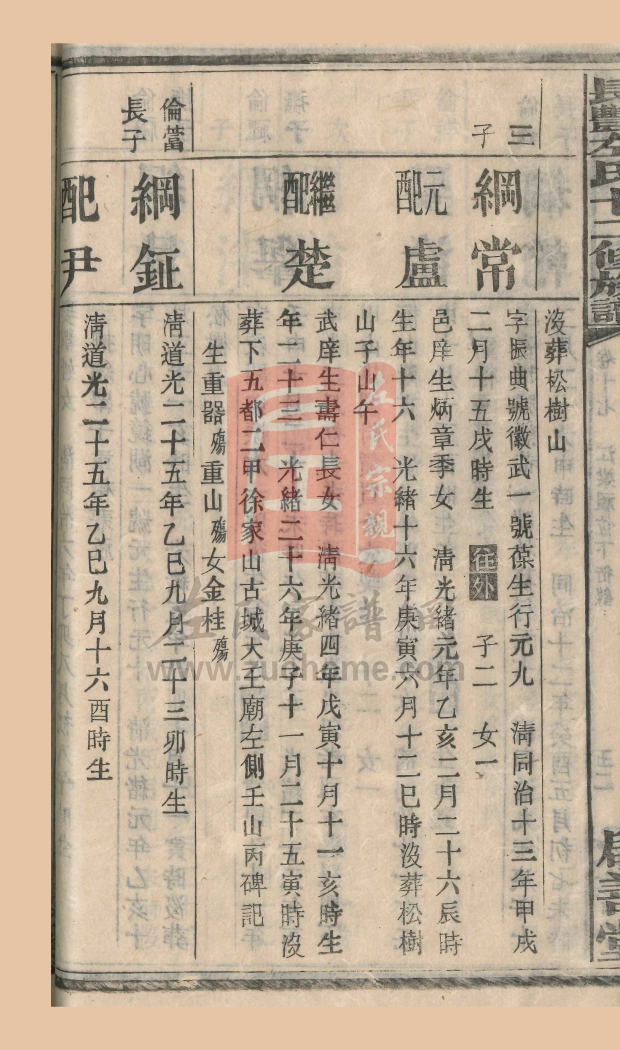 長豐左氏十二修族譜
沒葬松樹山
三子
綱常
字振典號徽武一號葆生行元九　清同治十三年甲戌
二月十五戌時生　往外　子二　女一
元配盧
邑庠生炳章季女　清光緒元年乙亥二月二十六辰時
生年十六　光緒十六年庚寅六月十二巳時沒葬松樹
山子山午
繼配楚
武庠生壽仁長女　清光緒四年戊寅十月十一亥時生
年二十三　光緒二十六年庚子十一月二十五寅時沒
葬下五都二甲徐家山古城大王廟左側壬山丙碑記
生重器殤重山殤女金桂殤
倫當長子
綱鉦
清道光二十五年乙巳九月二十三卯時生
配尹
清道光二十五年乙巳九月十六酉時生
左氏宗親
左氏家譜網
www.zuohome.com